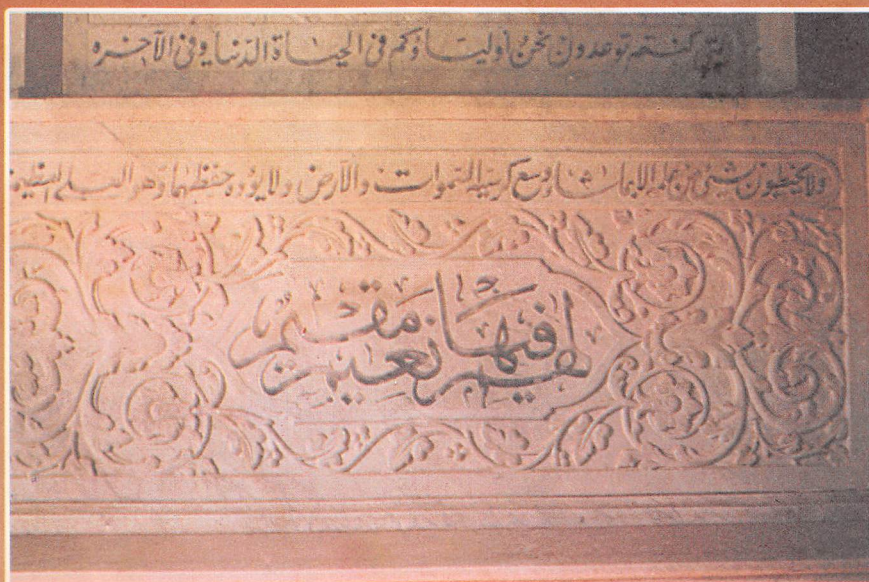 كنتم توعدون نحن أولياؤكم في الحياة الدنيا وفي الآخره
ولا يحيطون بشئ من علمه الا بما شا وسع كرسيه السموات والأرض ولا يؤده حفظهما وهو العلي العظيم
لهم فيها نعيم مقيم